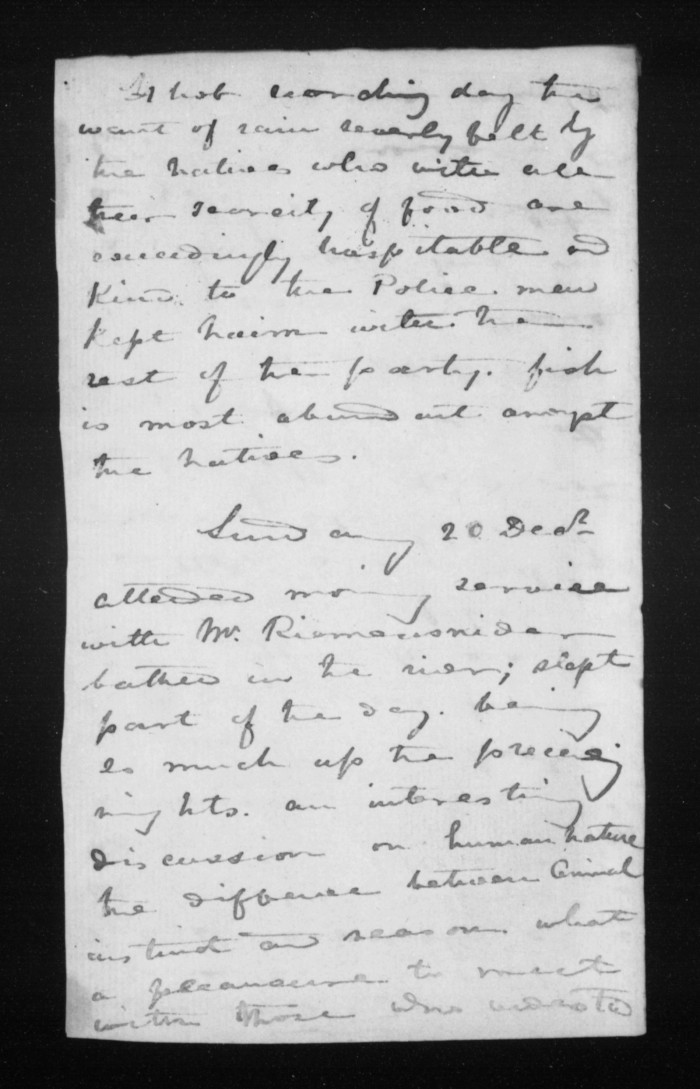 A hot scorching day the
want of rain severly felt by
the natives who with all
their scarcity of food are
exceedingly hospitable and
Kind to the Police men
kept haim with the
rest of the party. fish
is most abundant amogst
the natives.
Sunday 20 Decr
attended morning service
with Mr. Riemensnider
bathed in the river; slept
part of the day. being
so much up the preceeding
nights. an interesting
discussion on human nature
the difference between Animal
instinct and reason. what
a pleasure to meet
with those who